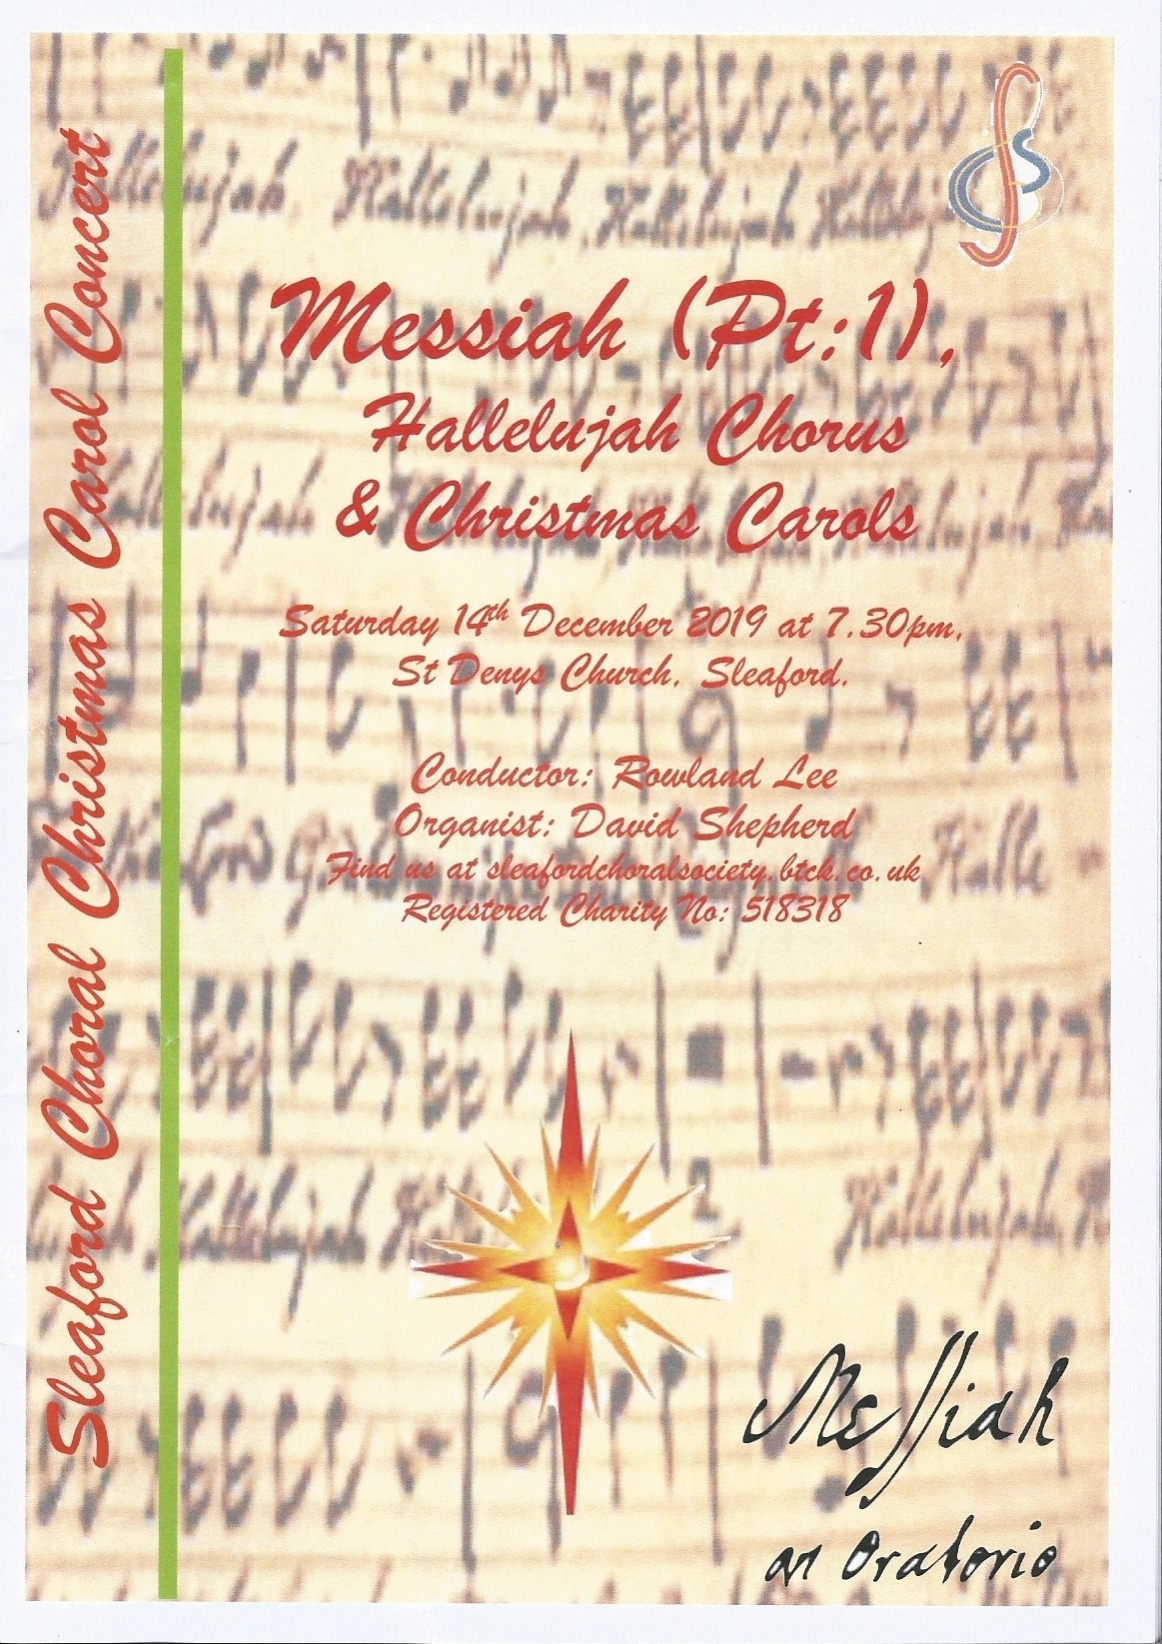 Sleaford Choral Christmas Carol Concert
Messiah (Pt:1),
Hallelujah Chorus
& Christmas Carols
Saturday 14th December 2019 at 7.30pm,
St Denys Church, Sleaford.
Conductor: Rowland Lee
Organist: David Shepherd
Find us at sleafordchoralsociety.btck.co.uk
Registered Charity No: 518318
Messiah
an Oratorio